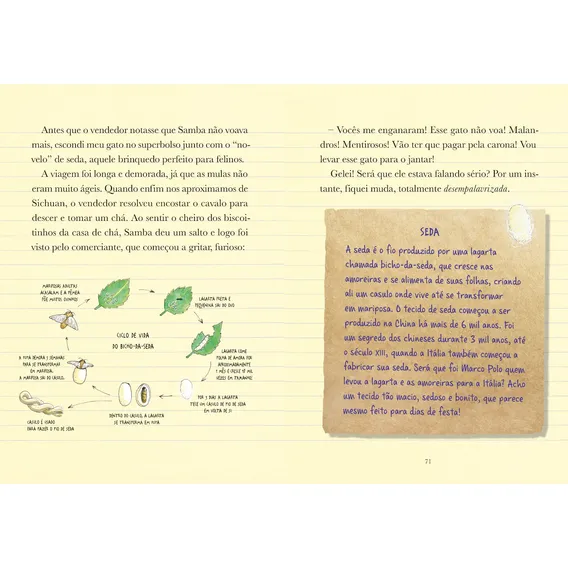 Antes que o vendedor notasse que Samba não voava
mais, escondi meu gato no superbolso junto com o “no-
velo” de seda, aquele brinquedo perfeito para felinos.
A viagem foi longa e demorada, já que as mulas não
eram muito ágeis. Quando enfim nos aproximamos de
Sichuan, o vendedor resolveu encostar o cavalo para
descer e tomar um chá. Ao sentir o cheiro dos biscoi-
tinhos da casa de chá, Samba deu um salto e logo foi
visto pelo comerciante, que começou a gritar, furioso:
CICLO DE VIDA
DO BICHO-DA-SEDA
MARIPOSAS ADULTAS
ACASALAM E A FÊMEA
PÕE MUITOS OVINHOS
LAGARTA PRETA E
PEQUENINA SAI DO OVO
LAGARTA COME
FOLHA DE AMORA POR
APROXIMADAMENTE
1 MÊS E CRESCE 10
VEZES EM TAMANHO
POR 3 DIAS A LAGARTA
TECE UM CASULO DE FIO DE SEDA
EM VOLTA DE SI
DENTRO DO CASULO, A LAGARTA
SE TRANSFORMA EM PUPA
A PUPA DEMORA 3 SEMANAS
PARA SE TRANSFORMAR
EM MARIPOSA.
A MARIPOSA SAI DO CASULO.
CASULO É USADO
PARA FAZER O FIO DE SEDA
– Vocês me enganaram! Esse gato não voa! Malan-
dros! Mentirosos! Vão ter que pagar pela carona! Vou
levar esse gato para o jantar!
Gelei! Será que ele estava falando sério? Por um ins-
tante, fiquei muda, totalmente desempalavrizada.
SEDA
A seda é o fio produzido por uma lagarta
chamada bicho-da-seda, que cresce nas
amoreiras e se alimenta de suas folhas, criando
ali um casulo onde vive até se transformar
em mariposa. O tecido de seda começou a ser
produzido na China há mais de 6 mil anos. Foi
um segredo dos chineses durante 3 mil anos, até
o século XIII, quando a Itália também começou a
fabricar sua seda. Será que foi Marco Polo quem
levou a lagarta e as amoreiras para a Itália? Acho
um tecido tão macio, sedoso e bonito, que parece
mesmo feito para dias de festa!
71